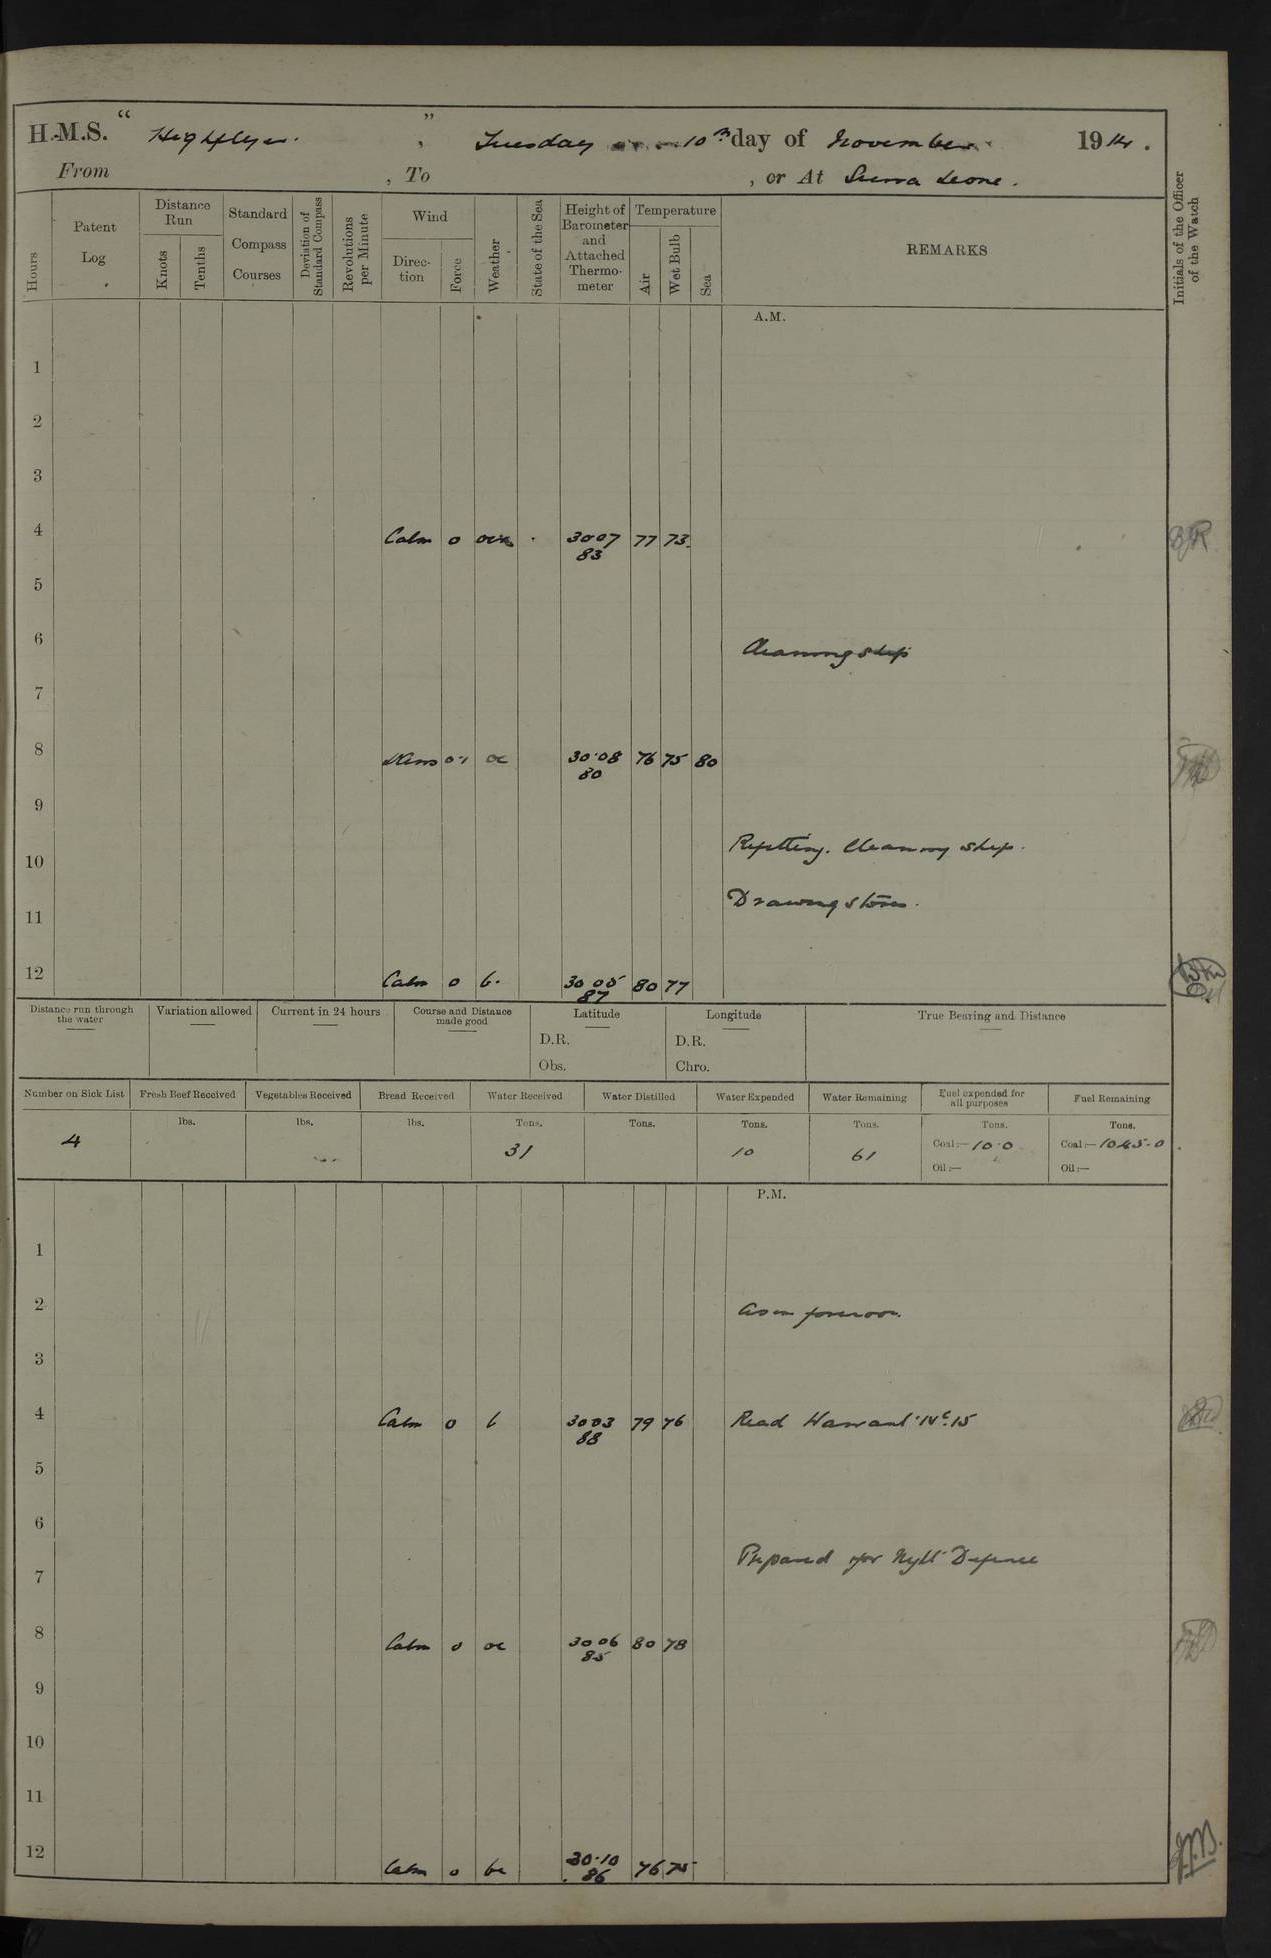 H.M.S. “ Highflyer. ” , Tuesday 10th day of November 1914.
From , To , or At Sierra Leone.
Hours
Patent Log
Distance Run
Knots
Tenths
Standard Compass Courses
Deviation of Standard Compass
Revolutions per Minute
Wind
Direction
Force
Weather
State of the Sea
Height of Barometer and Attached Thermometer
Temperature
Air
Wet Bulb
Sea
REMARKS
Initials of the Officer of the Watch
A.M.
1
2
3
4 Calm 0 3007 77 73
83
5
6 Cleaning ship
7
8 0-1 oc 30.08 76 75 80
80
9
Refitting. Cleaning ship.
10
Drawing stores.
11
12 Calm 0 b. 30 05 80 77
87
Distance run through the water
Variation allowed
Current in 24 hours
Course and Distance made good
Latitude
D.R.
Obs.
Longitude
D.R.
Chro.
True Bearing and Distance
Number on Sick List
Fresh Beef Received
Vegetables Received
Bread Received
Water Received
Water Distilled
Water Expended
Water Remaining
Fuel expended for all purposes
Fuel Remaining
lbs. lbs. lbs. Tons. Tons. Tons. Tons. Tons. Tons.
4 31 10 61 Coal:— 10.0 Coal:— 1045.0
Oil:— Oil:—
P.M.
1
2 As in forenoon.
3
4 Calm 0 b 3003 79 76 Read Warrant No. 15
88
5
6
Prepared for Night Defence
7
8 Calm 0 oc 3006 80 78
85
9
10
11
12 Calm 0 bc 30.10 76 75
86